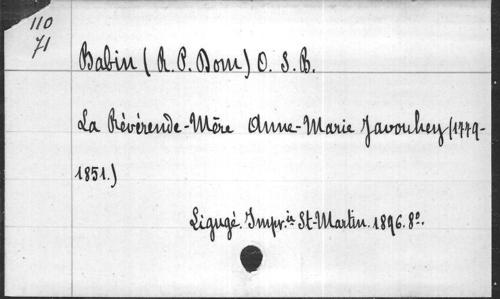 110
71
Babin (R. P. Dom) O. S. B.
La Révérende-Mère Anne-Marie Javouhey (1779-
1851.)
Ligugé. Impr.ie St-Martin. 1896. 8o.